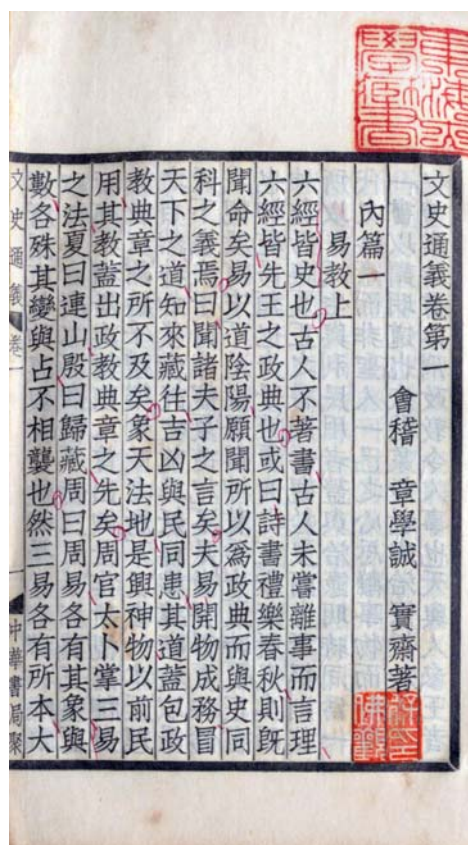 文史通義卷第一
會稽 章學誠 實齋著
內篇一
易教上
六經皆史也古人不著書古人未嘗離事而言理
六經皆先王之政典也或曰詩書禮樂春秋則旣
聞命矣易以道陰陽願聞所以爲政典而與史同
科之義焉曰聞諸夫子之言矣夫易開物成務冒
天下之道知來藏往吉凶與民同患其道蓋包政
教典章之所不及矣象天法地是興神物以前民
用其教蓋出政教典章之先矣周官太卜掌三易
之法夏曰連山殷曰歸藏周曰周易各有其象與
數各殊其變與占不相襲也然三易各有所本大
文史通義 卷一
一
中華書局聚